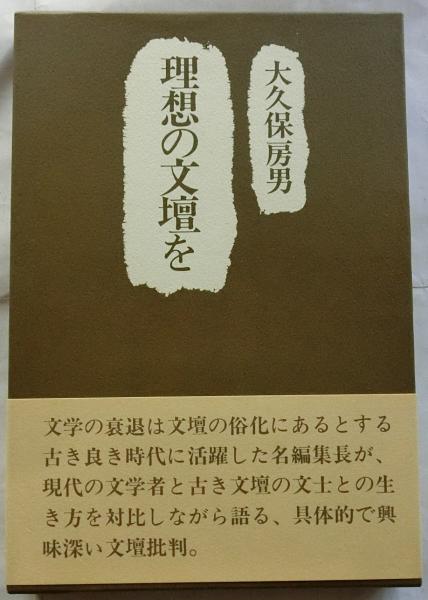 大久保房男
理想の文壇を
文学の衰退は文壇の俗化にあるとする
古き良き時代に活躍した名編集長が、
現代の文学者と古き文壇の文士との生
き方を対比しながら語る、具体的で興
味深い文壇批判。